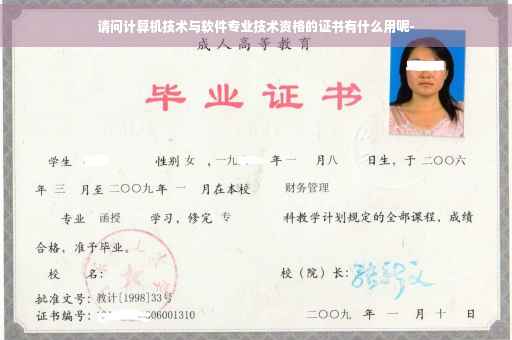 请问计算机技术与软件专业技术资格的证书有什么用呢-
成人高等教育
毕业证书
学生 性别 女 ，一九 年一 月八 日生，于二〇〇六
年 三 月至二〇〇九年 一 月在本校 财务管理
专业 函授 学习，修完 专 科教学计划规定的全部课程，成绩
合格，准予毕业。
校 名： 校（院）长：
批准文号：教计[1998]33号
证书编号： 06001310 二〇〇九 年 一 月 十 日